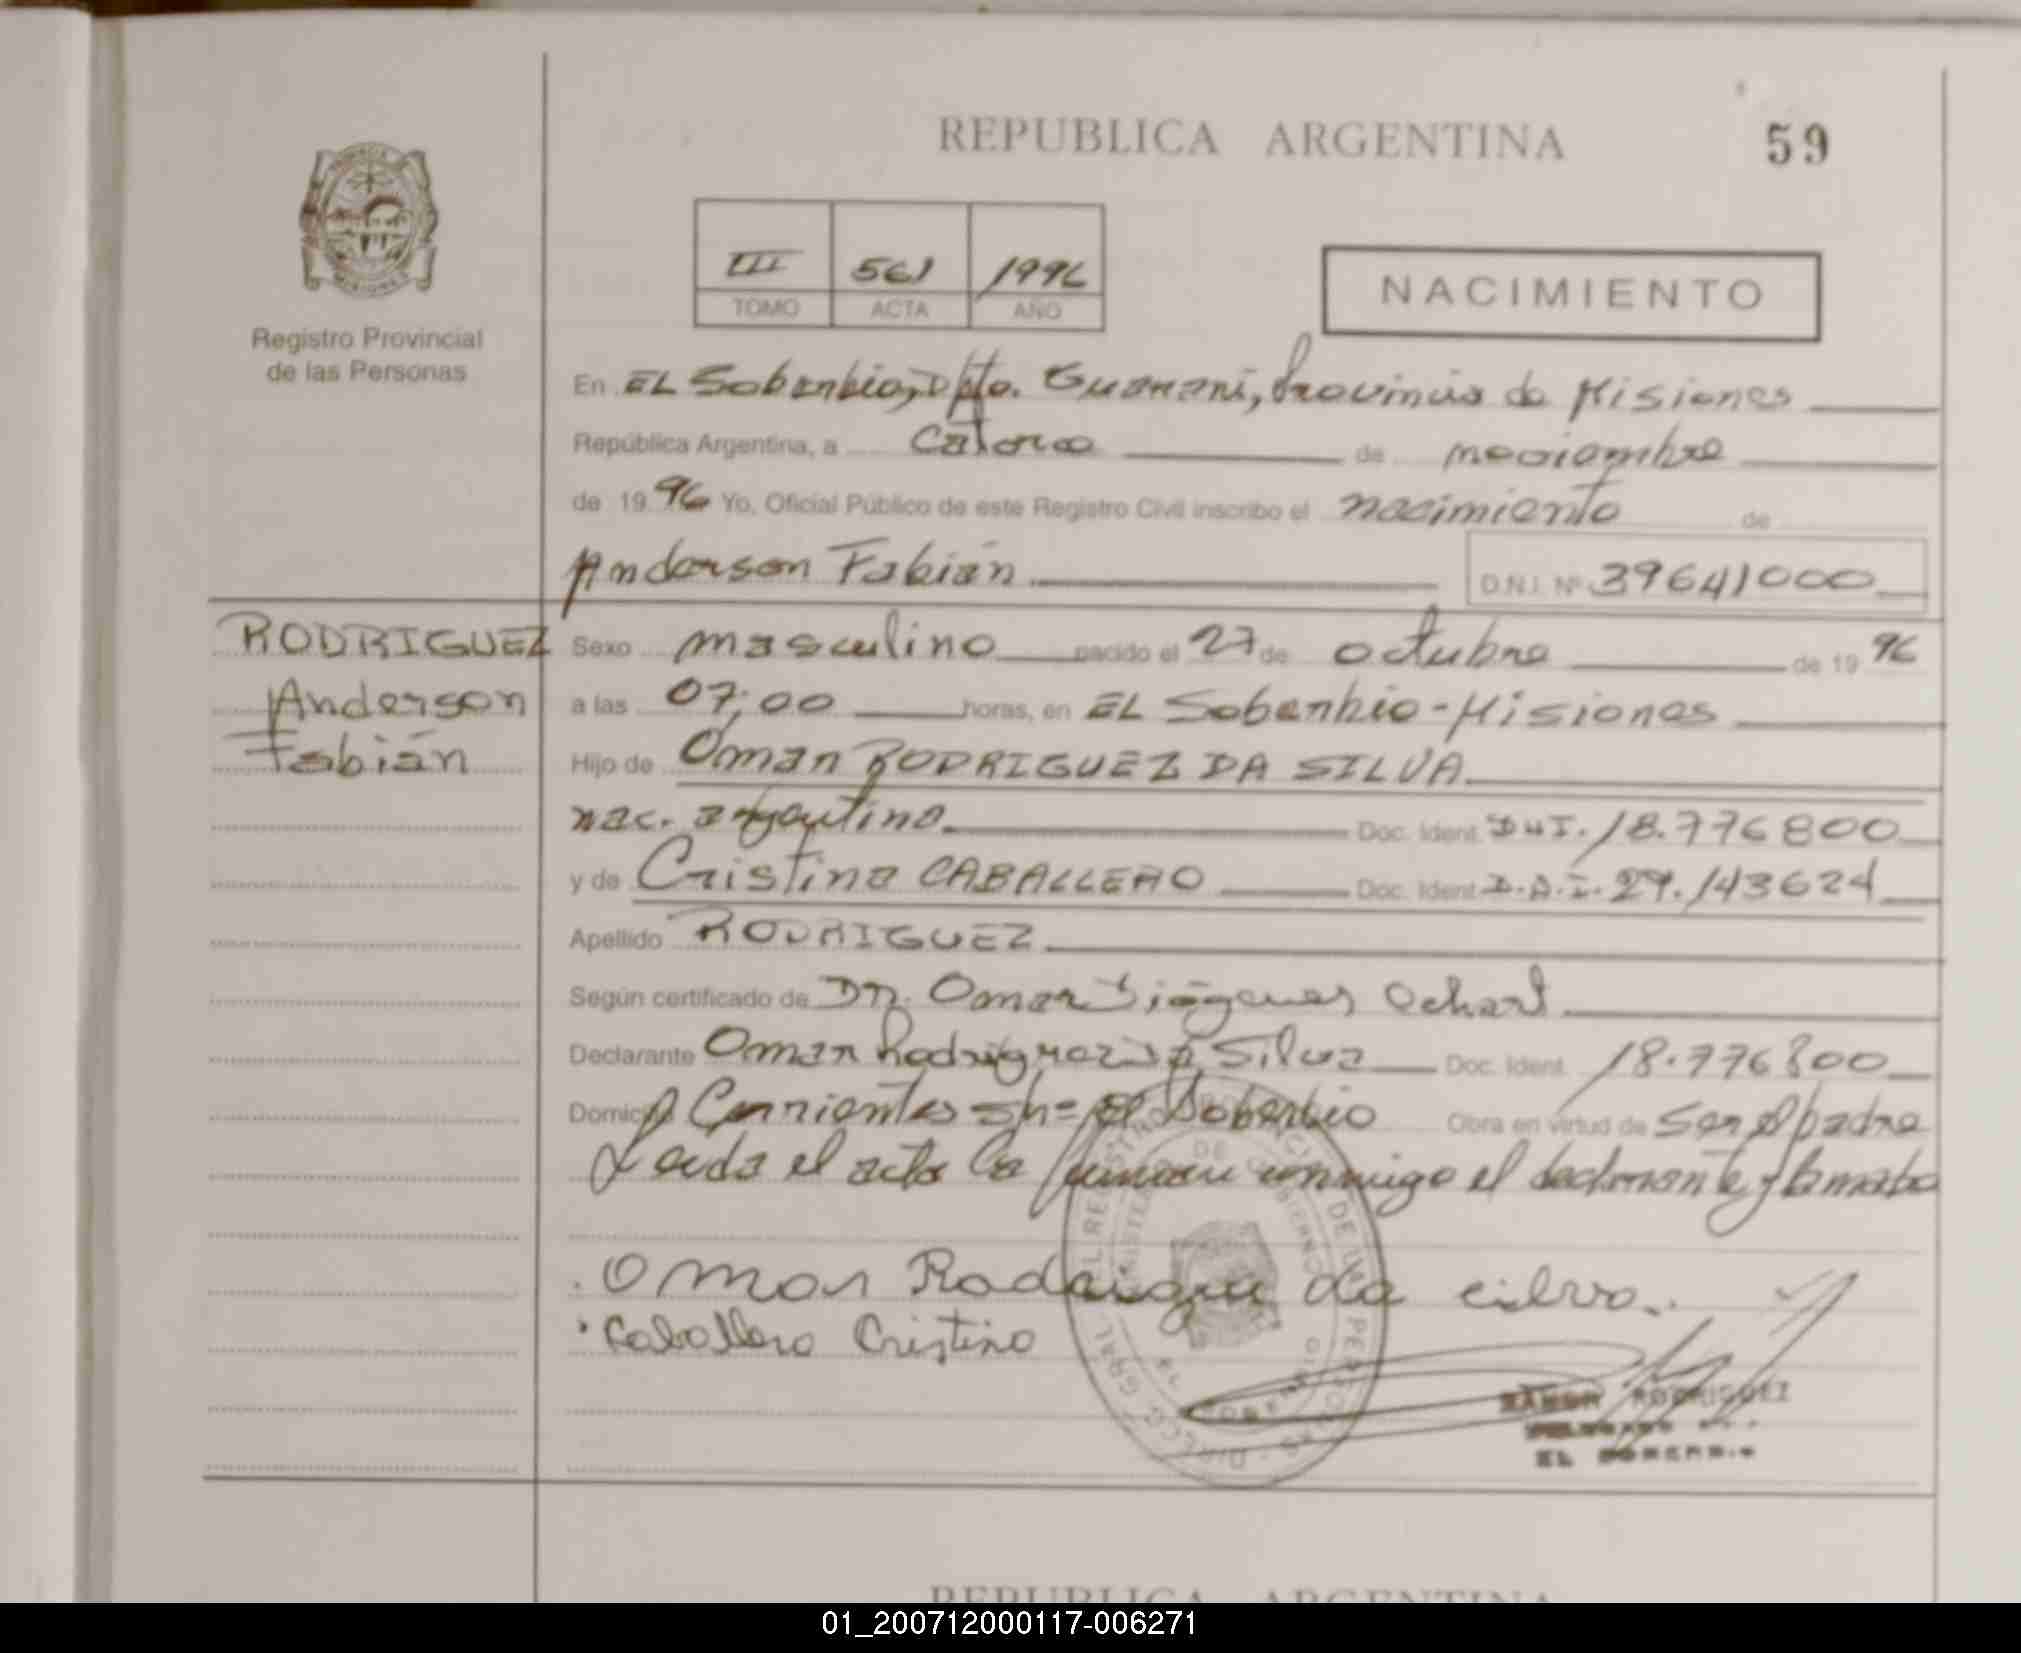 REPUBLICA ARGENTINA
59
III 561 1996
TOMO ACTA AÑO
NACIMIENTO
Registro Provincial
de las Personas
En EL Soberbio, Dpto. Guaraní, Provincia de Misiones
República Argentina, a catorce de noviembre
de 19 96 Yo, Oficial Público de este Registro Civil inscribo el nacimiento de
Anderson Fabián D.N.I. Nº 39641000
RODRIGUEZ
Anderson
Fabián
Sexo masculino nacido el 27 de octubre de 19 96
a las 07,00 horas, en EL Soberbio - Misiones
Hijo de Omar RODRIGUEZ DA SILVA
nac. argentino Doc. Ident. DNI. 18.776800
y de Cristina CABALLERO Doc. Ident. 29.143624
Apellido RODRIGUEZ
Según certificado de Dr. Omar Diógenes Ochart
Declarante Omar Rodriguez Da Silva Doc. Ident. 18.776800
Domic Corrientes s/nº El Soberbio Obra en virtud de ser el padre
Leida el acta la firman conmigo el declarante y la madre
Omar Rodrigue da cilva
Caballero Cristina
RAMON RODRIGUEZ
EL SOBERBIO
REPUBLICA ARGENTINA
01_200712000117-006271